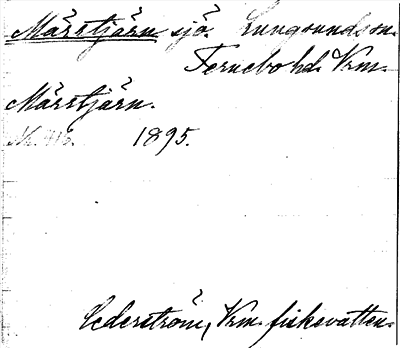 Märstjärn sjö Lungsunds sn.
Fernebo hd. Vrm.
Märstjärn.
1895.
Cederström, Vrm. fiskevatten.